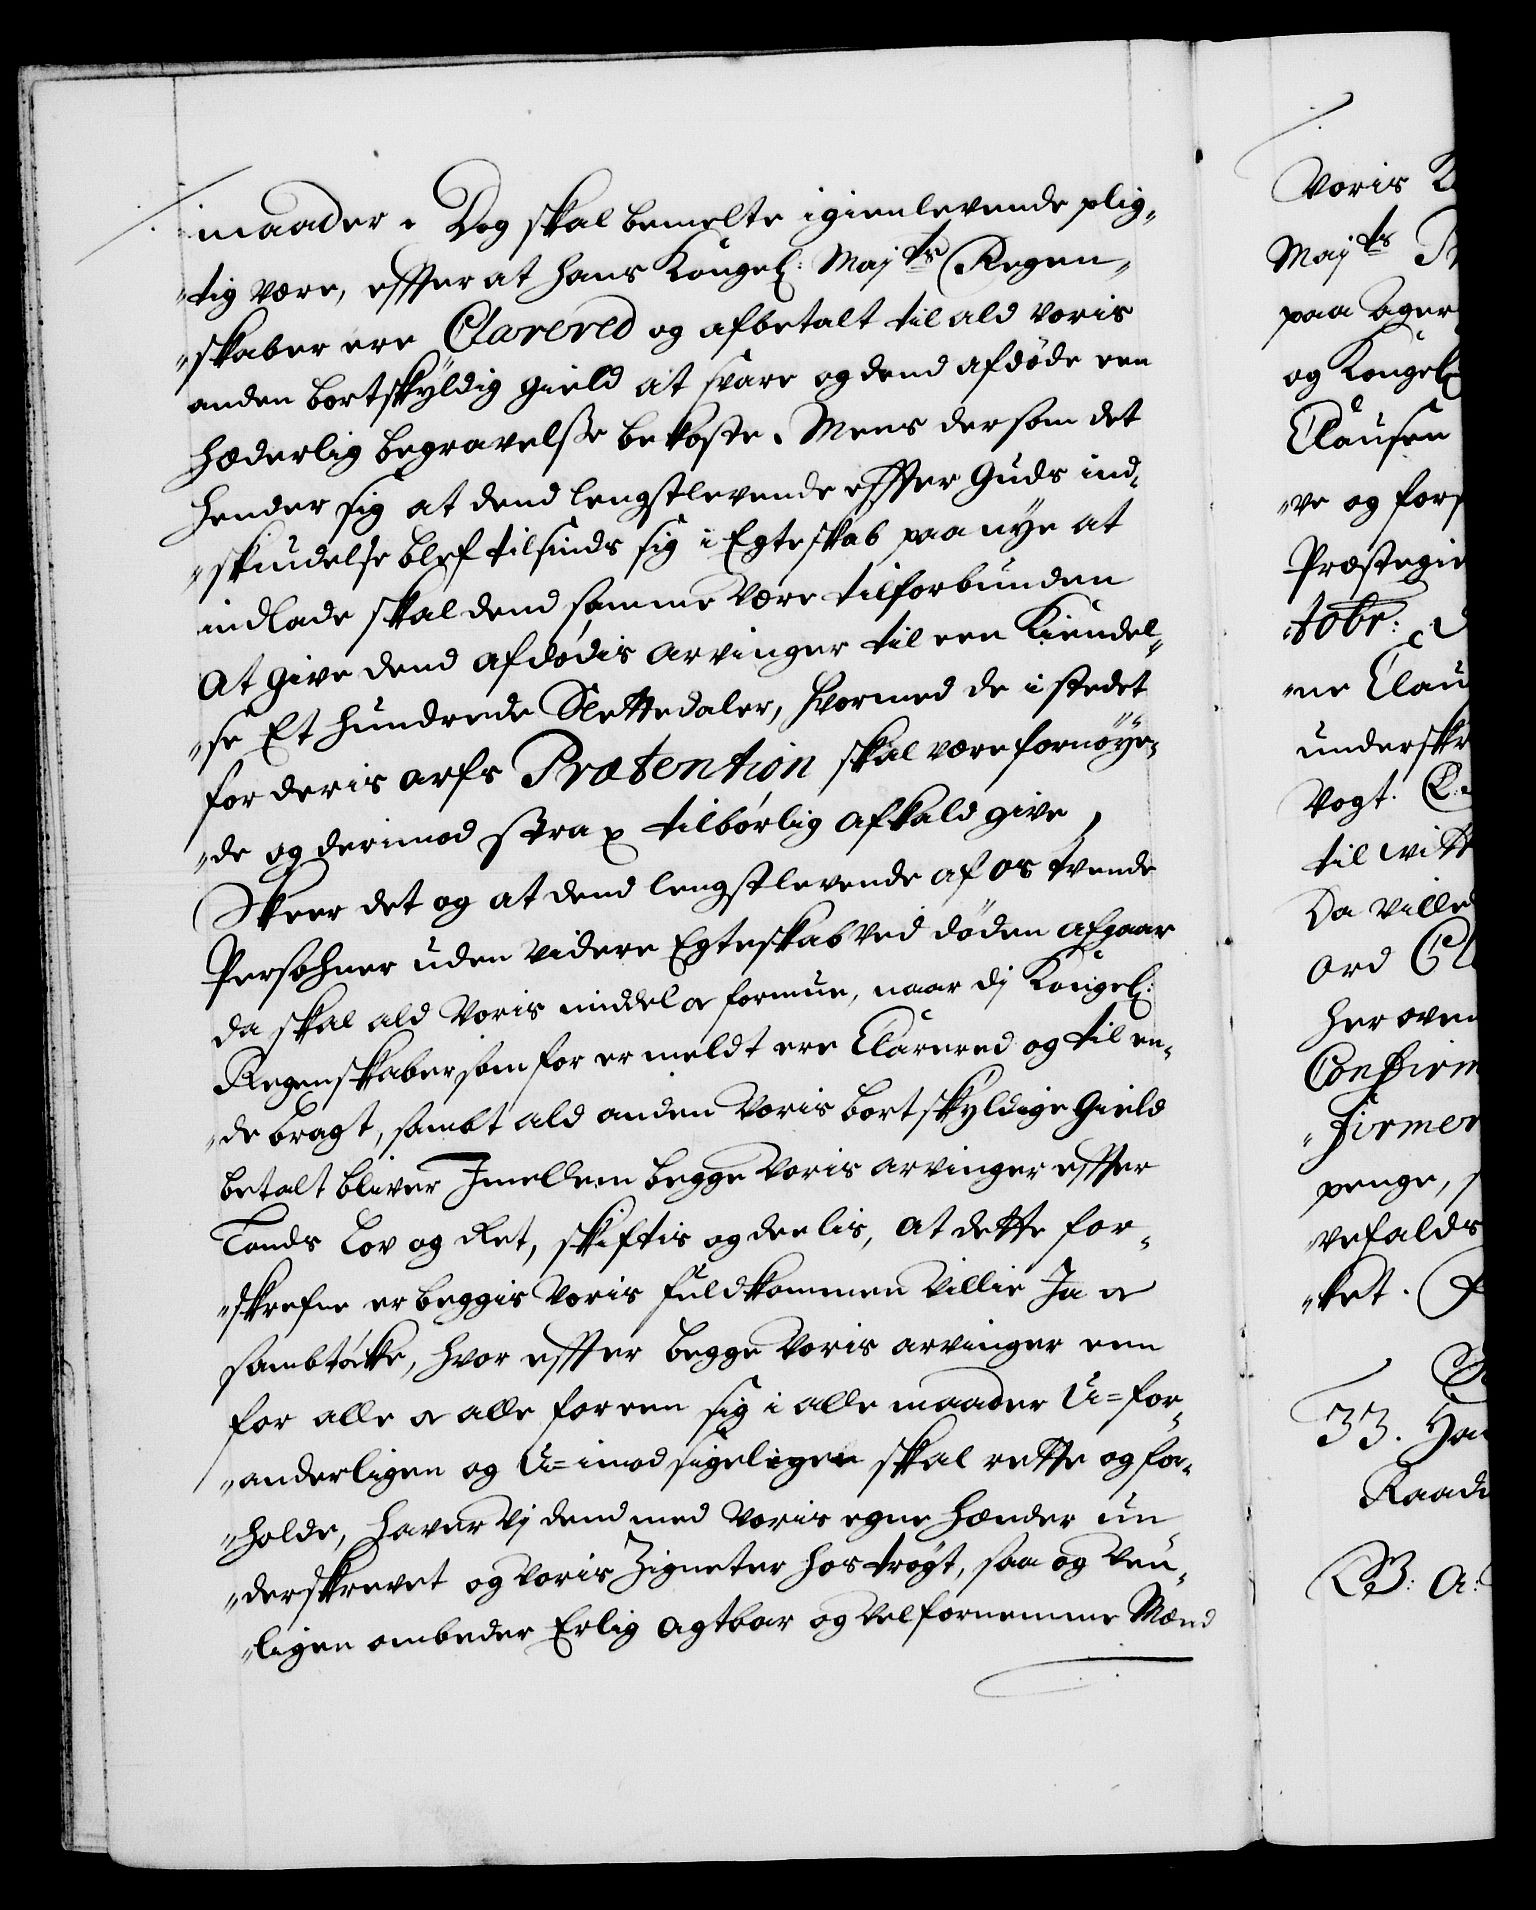 maader. Dog skal bemelte igienlevende plig„
„tig være, effter at hans Kongel: Maj.ts Regen„
„skaber ere Clarered og afbetalt til ald voris
anden bortskyldig gield at svare og dend afdøde een
hæderlig begravelsse bekoste. Mens dersom det
hender sig at dend lengstlevende effter Guds ind„
„skiudelse blef tilsinds sig i Egteskab paa nye at
indlade skal dend samme være tilforbunden
at give dend afdødis arvinger til een Kiendel„
„se Et hundrede Slettedaler, hvormed de i stedet
for deris arfs Prætention skal være fornøye„
„de og derimod strax tilbørlig afkald give,
Skeer det og at dend lengstlevende af os tvende
Persohner uden videre Egteskab ved døden afgaar
da skal ald voris middel & formue, naar dj Kongel:
Regenskaber som for er meldt ere Clarered og til en„
„de bragt, sambt ald anden voris bortskyldige Gield
betalt bliver Imellem begge voris arvinger effter
Lands Lov og Ret, skiftis og deelis, at dette for„
„skrefne er beggis voris fuldkommen villie Ja &
sambtøcke, hvor effter begge voris arvinger een
for alle & alle for een sig i alle maader U=for„
„anderligen og U=imodsigeligen skal rette og for„
„holde, haver vj dend med voris egne hænder un„
„derskrevet og voris Zigneter hos trøgt, saa og ven„
„ligen ombeder Erlig agtbar og velfornemme Mænd
voris
Maj.ts
paa Ager
og Kongel:
Clausen
„ve og fors
Præstegie
„tobr:
„ne Clau
underskr
Vogt.
til vitt
Da ville
ord
her oven
Confirm
„firmer
penge, s
„vefalds
„ket.
33. Ha
Raad